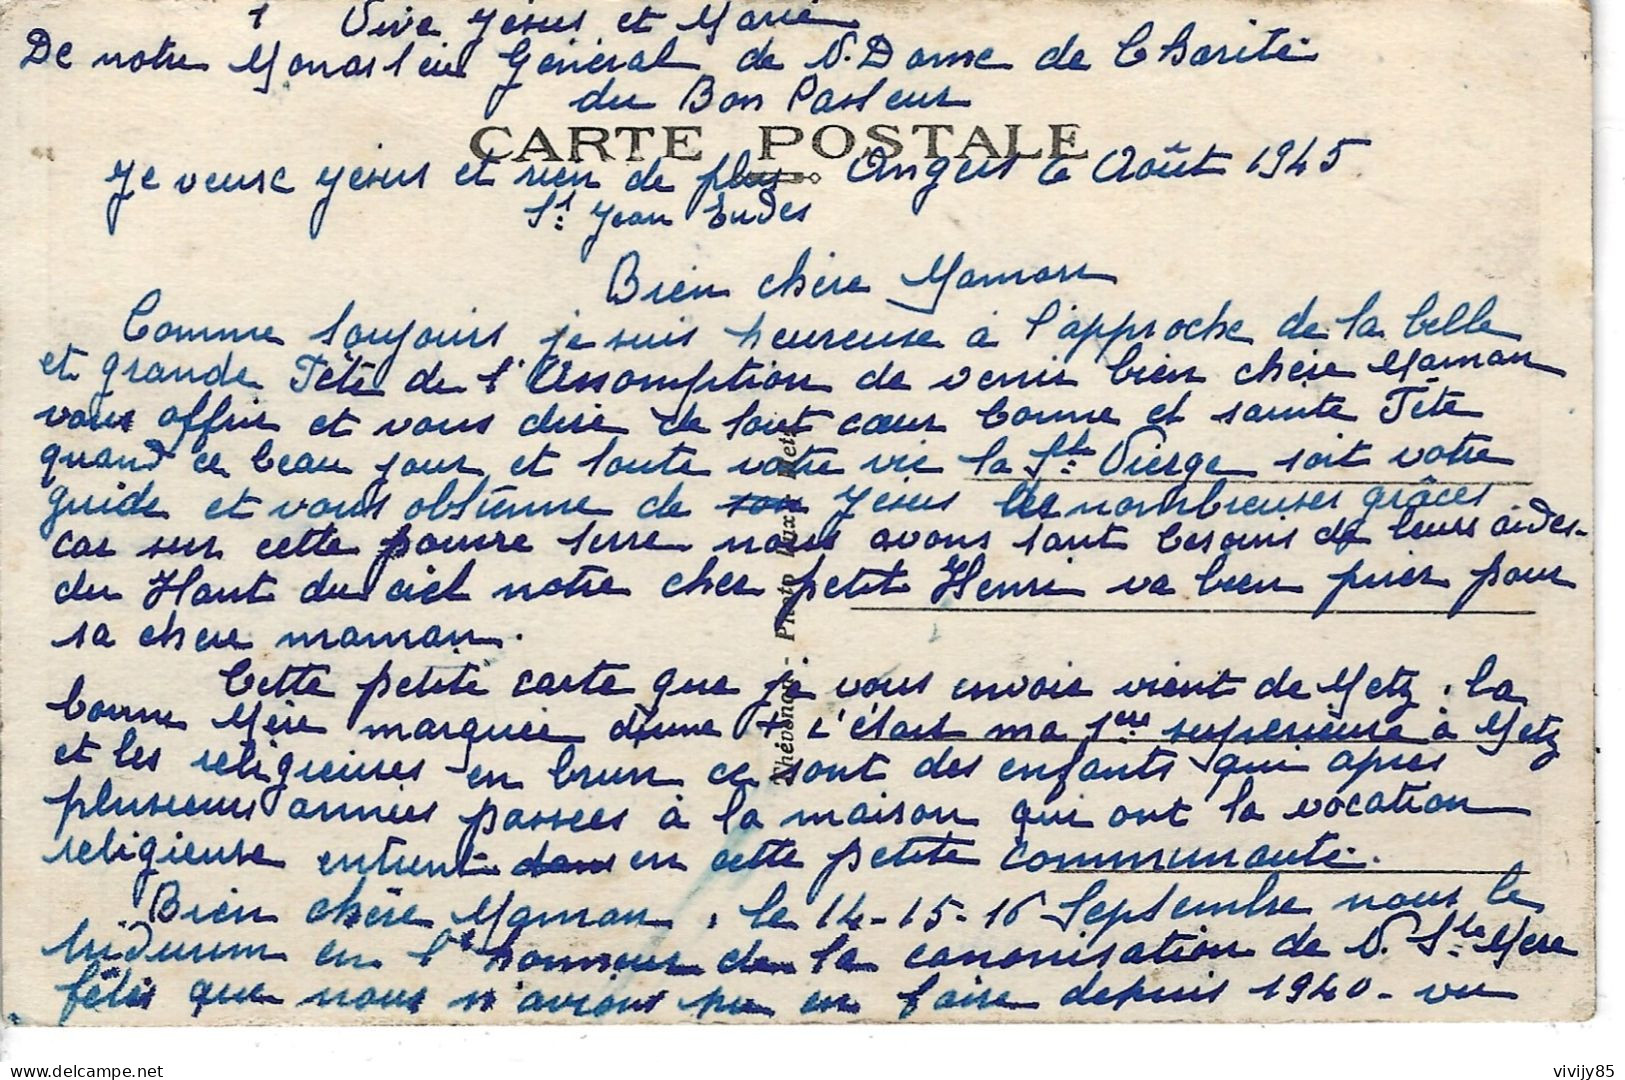 † Vive Jésus et Marie
De notre Monastère Général de N. Dame de Charité
du Bon Pasteur
CARTE POSTALE
Je veux Jésus et rien de plus Angers 6 Août 1945
St Jean Eudes
Bien chère Maman
Comme toujours je suis heureuse à l'approche de la belle
et grande Fête de l'Assomption de venir bien chère Maman
vous offrir et vous dire de tout cœur bonne et sainte Fête
quand ce beau jour et toute votre vie la Ste Vierge soit votre
guide et vous obtienne de son Jésus les nombreuses grâces
car sur cette pauvre terre nous avons tant besoins de leurs aides-
du Haut du ciel notre cher petit Henri va bien prier pour
sa chère maman.
Cette petite carte que je vous envoie vient de Metz. la
bonne Mère marquée d'une + c'était ma 1ère supérieure à Metz
et les religieuses en brun ce sont des enfants qui après
plusieurs années passées à la maison qui ont la vocation
religieuse entrent dans en cette petite communauté.
Bien chère Maman, le 14-15-16 Septembre nous le
triduum en l' honneur de la canonisation de N. Ste Mère
fêtes que nous n'avions pu en faire depuis 1940 - vu
Thévenon - Photo Lux Metz
vivijy85